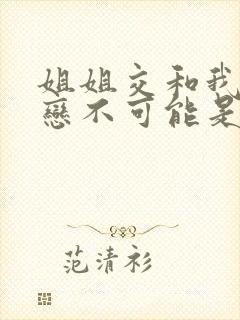 姐姐交和我
戀不可能是
范清衫